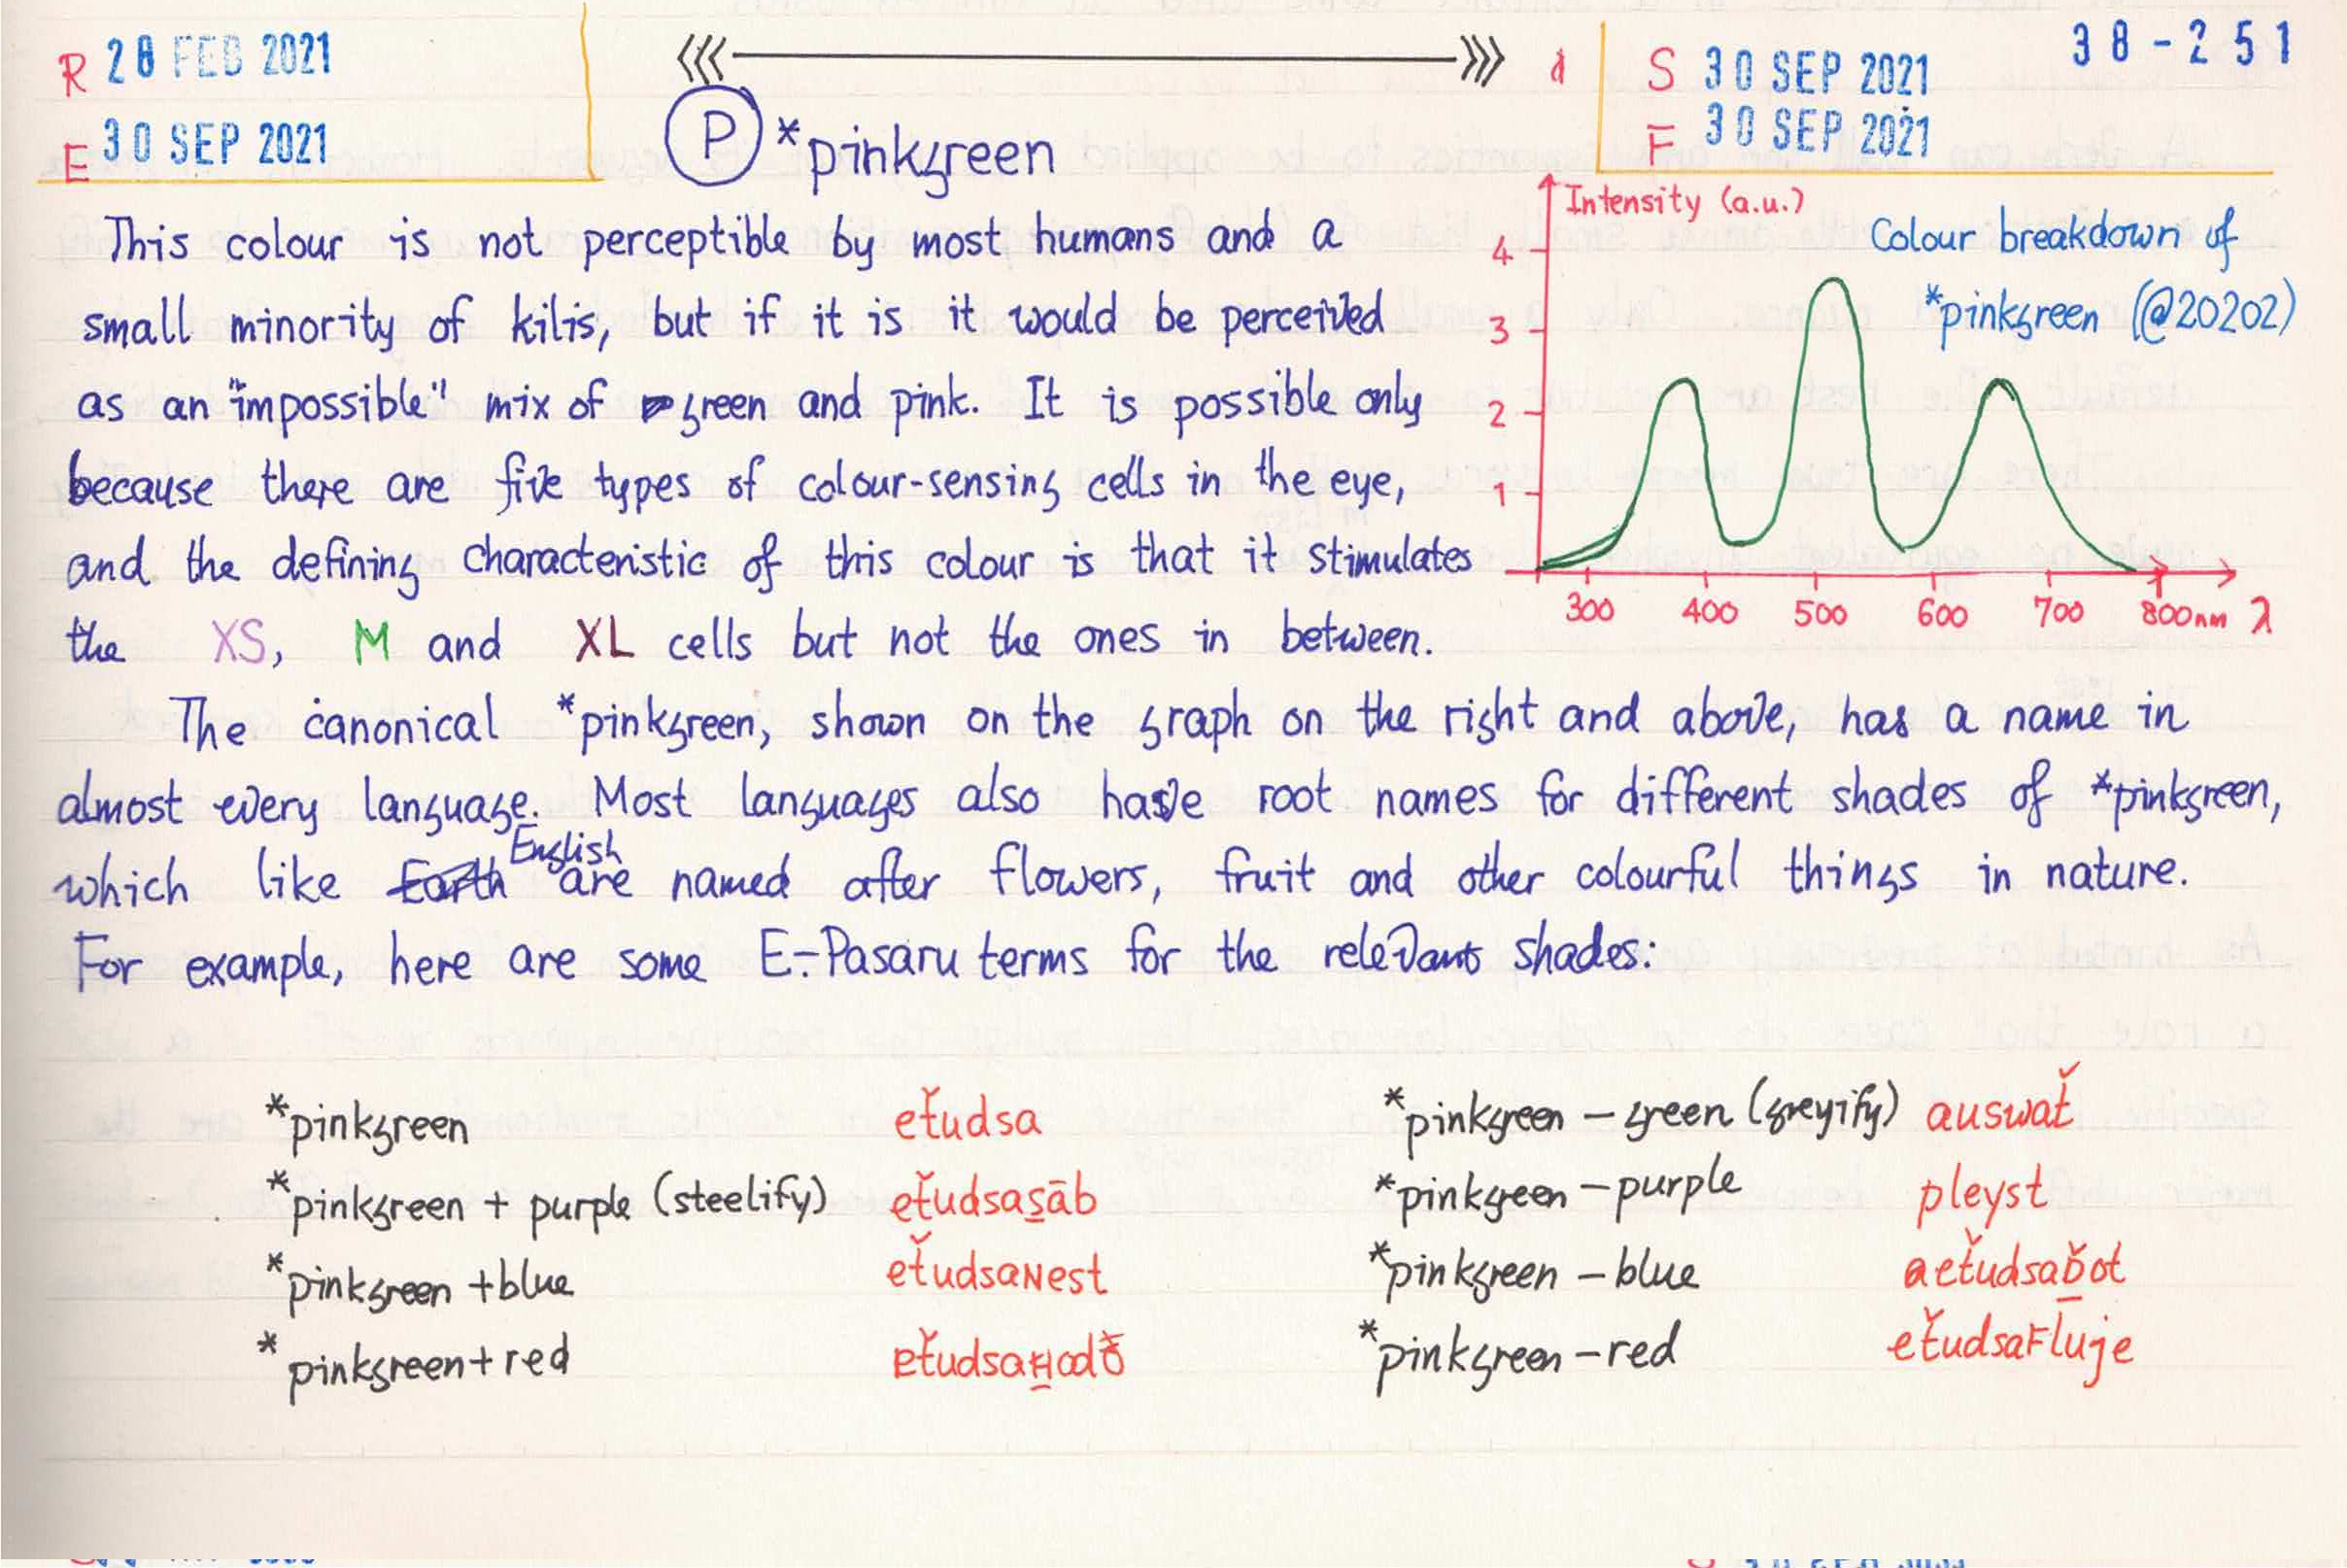 R 28 FEB 2021
E 30 SEP 2021
S 30 SEP 2021
F 30 SEP 2021
38-251
P *pinkgreen
This colour is not perceptible by most humans and a
small minority of kilis, but if it is it would be perceived
as an "impossible" mix of green and pink. It is possible only
because there are five types of colour-sensing cells in the eye,
and the defining characteristic of this colour is that it stimulates
the XS, M and XL cells but not the ones in between.
Intensity (a.u.)
Colour breakdown of
*pinkgreen (@20202)
4
3
2
1
300 400 500 600 700 800nm λ
The canonical *pinkgreen, shown on the graph on the right and above, has a name in
almost every language. Most languages also have root names for different shades of *pinkgreen,
which like Earth English are named after flowers, fruit and other colourful things in nature.
For example, here are some E-Pasaru terms for the relevant shades:
*pinkgreen eťudsa
*pinkgreen + purple (steelify) eťudsas̱āb
*pinkgreen + blue eťudsaɴest
*pinkgreen + red
*pinkgreen – green (greyify) auswať
*pinkgreen – purple pleyst
*pinkgreen – blue
*pinkgreen – red eťudsaFluje